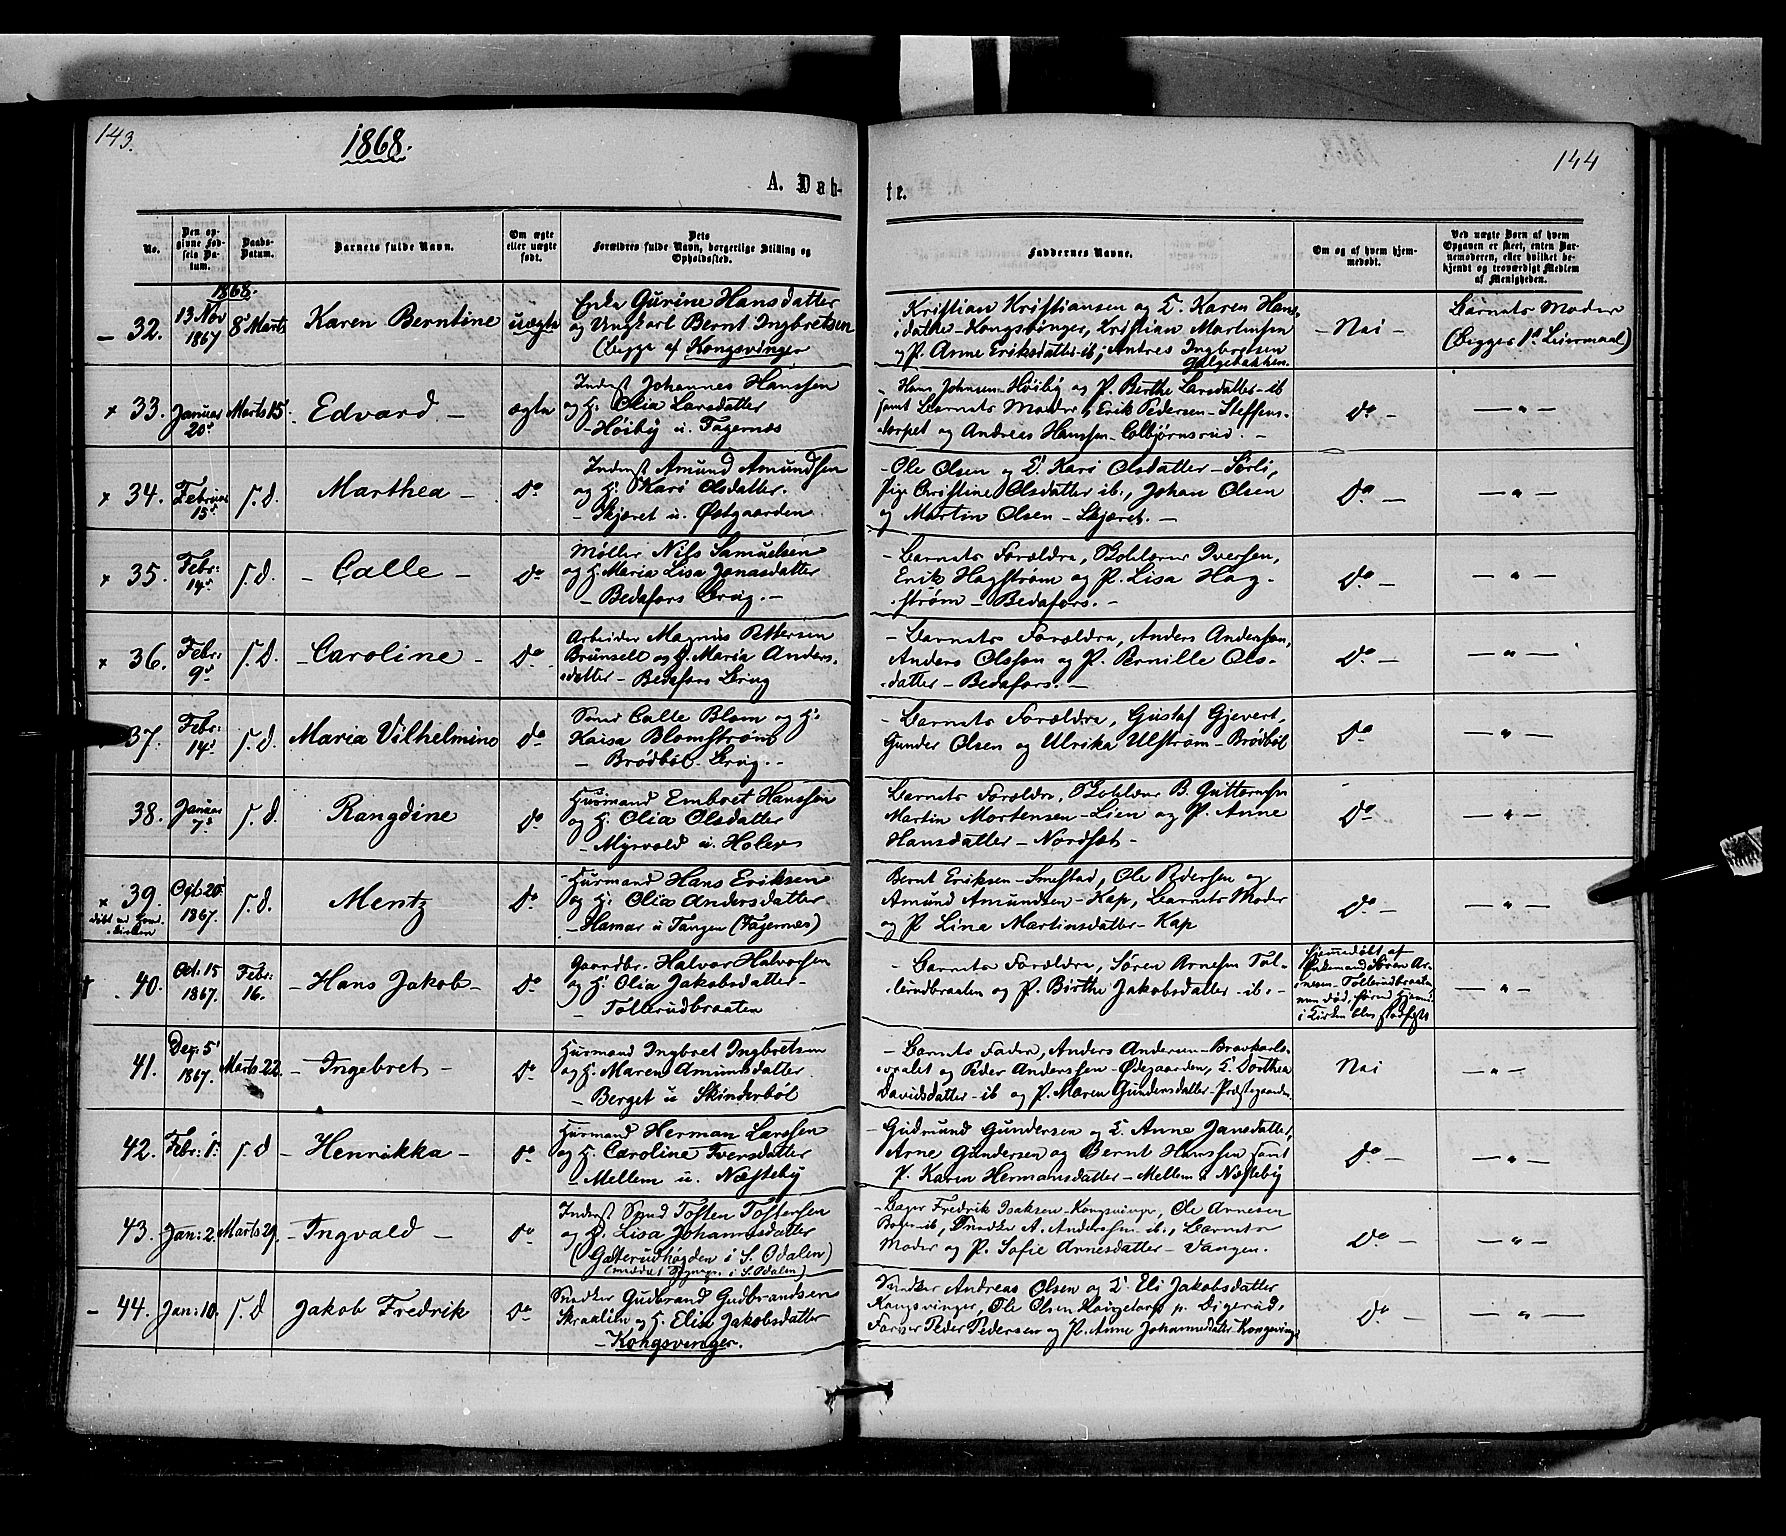 143.
1868.
A. Dab-
te.
144
No.
Den op-
givne Fød-
sels Da-
tum.
Daabs-
Datum.
Barnets fulde Navn.
Om ægte
eller uægte
født.
Dets
Forældres fulde Navn, borgerlige Stilling og
Opholdssted.
Faddernes Navne.
Om og af hvem hjem-
medøbt.
Ved uægte Børn af hvem
Opgaven er skeet, enten Bar-
nemoderen, eller hvilket be-
kjendt og troværdigt Medlem
af Menigheden.
1868.
– 32.
13 Nov
1867
8 Marts
Karen Berntine
uægte
Enke Gurine Hansdatter
og Ungkarl Bernt Ingbretsen
(begge af Kongsvinger
Kristian Kristiansen og E. Karen Han-
sdatter – Kongsvinger, Kristian Martinsen
og P. Anne Eriksdatter ib; Antres Ingbretsen
Galgebakken.
– Nei –
Barnets Moder
(Begges 1ste Leiermaal)
× 33.
Januar
20de
Marts 15.
Edvard –
ægte
Inderst Johannes Hanssen
og H. Olia Larsdatter
– Høiby u. Tagernæs
– Hans Johnsen – Høiby og P. Berthe Larsdatter – ib
samt Barnets Moder, Erik Pedersen – Steffens-
torpet og Andreas Hanssen – Colbjørnsrud. –
Do –
— " —
× 34.
Februar
15de
s. D.
Marthea –
Do
Inderst Amund Amundsen
og H. Kari Olsdatter.
– Skjæret u. Østgaarden
– Ole Olsen og E. Kari Olsdatter – Sørli,
Pige Christine Olsdatter ib., Johan Olsen
og Martin Olsen – Skjæret. –
Do –
— " —
× 35.
Febr:
14de
s. D.
– Calle –
Do
Møller Nils Samuelsen
og H. Maria Lisa Jonasdatter
– Bedafors Brug. –
– Barnets Forældre, Skolelærer Iversen,
Erik Hagstrøm og P. Lisa Hag-
strøm – Bedafors. –
Do –
— " —
× 36.
Febr:
9de
s. D.
– Caroline –
Do
Arbeider Magnus Pettersen
Brunsell og H. Maria Anders-
datter – Bedafors Brug
– Barnets Forældre, Anders Anderssen,
Anders Olsson og P. Pernille Ols-
datter – Bedafors. –
Do –
— " —
37.
Febr:
14de
s. D.
Maria Vilhelmine
Do
Smed Calle Blom og H.
Kaisa Blomstrøm
– Brødbøl Brug. –
– Barnets Forældre, Gustaf Gjevert,
Gunder Olsen og Ulrika Ulstrøm – Brødbøl
Do
— " —
38.
Januar
7de
s. D.
Rangdine
Do
Husmand Embret Hanssen
og H. Olia Olsdatter
– Myrvold u. Holer
Barnets Forældre, Skolelærer B. Guttormsen
Martin Mortensen – Lien og P. Anne
Hansdatter – Nordset –
Do
— " —
× 39.
Oct 20
1867.
s. D.
Mentz
Do
Husmand Hans Eriksen
og H. Olia Andersdatter.
– Hamar u Tangen (Tagernes)
Bernt Eriksen – Smestad, Ole Pedersen og
Amund Amundsen – Kap, Barnets Moder
og P Lina Martinsdatter – Kap
Do –
— " —
† 40.
Oct. 15
1867.
Febr:
16.
– Hans Jakob –
Do
Gaardbr. Halvor Halvorsen
og H. Olia Jakobsdatter –
– Tollerudbraaten
– Barnets Forældre, Søren Arnesen Tol-
lerudbraaten og P. Birthe Jakobsdatter – ib. –
Hjemmedøbt af
Enkemand Søren Ar-
nesen – Tollerudbraaten
men død, førend Hjemmed.
i Kirken blev stadfæstet
— " —
41.
Dez. 5
1867.
Marts 22.
– Ingebret –
Do
Husmand Ingbret Ingbretsen
og H. Maren Amunsdatter
– Berget u. Skinderbøl
– Barnets Fader, Anders Andersen – Bravkarls-
opalet og Peder Anderssen – Ødegaarden, E. Dorthea
Davidsdatter – ib og P. Maren Gundersdatter – Præstegaarden
Nei
— " —
42.
Febr: 1.
s. D
– Henrikka –
Do
Husmand Herman Larssen
og H. Caroline Iversdatter
– Mellem u. Næsteby
– Gudmund Gundersen og E. Anne Jansdatter,
Arne Gundersen og Bernt Hanssen samt
P. Karen Hermansdatter – Mellem u Næsteby
Do –
— " —
43.
Jan: 2.
Marts 29.
– Ingvald –
Do
Inderst Smed Tosten Tostensen
og H. Lisa Johannesdatter
(Gæterudhøgden i S. Odalen)
– Bager Fredrik Isaksen – Kongsvinger, Ole Arnesen
Bager ib, Snedker A. Anderssen ib., Barnets
Moder og P. Sofie Arnesdatter – Vangen.
Do –
— " —
– 44.
Jan: 10.
s. D
Jakob Fredrik
Do
Snedker Gudbrand Gudbrandsen
Skraalien og H. Elise Jakobsdatter
– Kongsvinger.
Snedker Andreas Olsen og E. Eli Jakobsdatter
Kongsvinger, Ole Olsen Haugeland p. Digerud,
Farver Peder Pedersen og P. Anne Johannesdatter – Kongsvinger
Do –
— " —